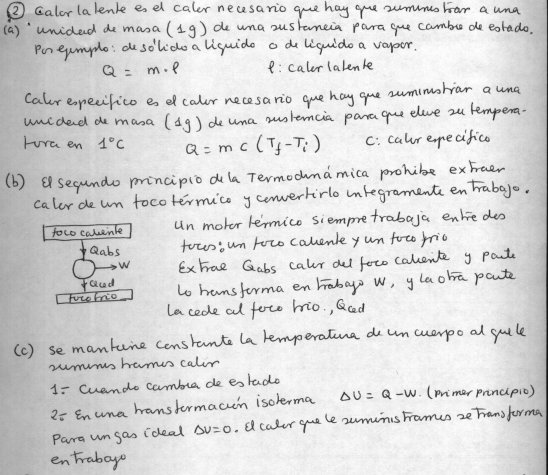 ② Calor latente es el calor necesario que hay que suministrar a una
(a) unidad de masa (1g) de una sustancia para que cambie de estado.
Por ejemplo: de sólido a líquido o de líquido a vapor.
Q = m·l l: calor latente
Calor específico es el calor necesario que hay que suministrar a una
unidad de masa (1g) de una sustancia para que eleve su tempera-
tura en 1°C Q = m c (Tf - Ti) C: calor específico
(b) El segundo principio de la Termodinámica prohibe extraer
calor de un foco térmico y convertirlo integramente en trabajo.
foco caliente
Qabs
W
Qced
foco frío
Un motor térmico siempre trabaja entre dos
focos: un foco caliente y un foco frio
Extrae Qabs calor del foco caliente y parte
lo transforma en trabajo W, y la otra parte
la cede al foco frio., Qced
(c) se mantiene constante la temperatura de un cuerpo al que le
suministramos calor
1= Cuando cambia de estado
2= En una transformación isoterma ΔU = Q - W. (primer principio)
Para un gas ideal ΔU=0. El calor que le suministramos se transforma
en trabajo